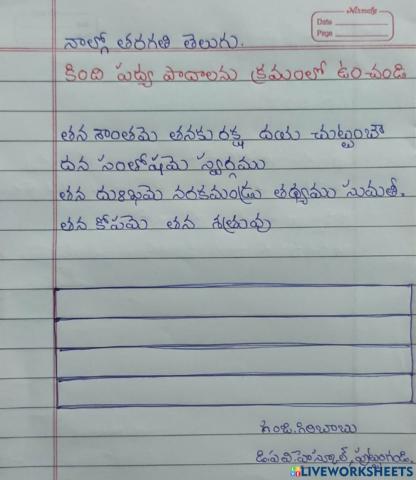 Nixmofs
Date
Page
నాల్గో తరగతి తెలుగు.
కింది పద్య పాదాలను క్రమంలో ఉంచండి
తన శాంతమె తనకు రక్ష దయ చుట్టంబౌ
దన సంతోషమె స్వర్గము
తన దుఃఖమె నరకమండ్రు తథ్యము సుమతీ.
తన కోపమె తన శత్రువు
గంజి.గిరిబాబు
డి.ఏ.వి.హైస్కూల్,పుట్టంగండి.
LIVEWORKSHEETS